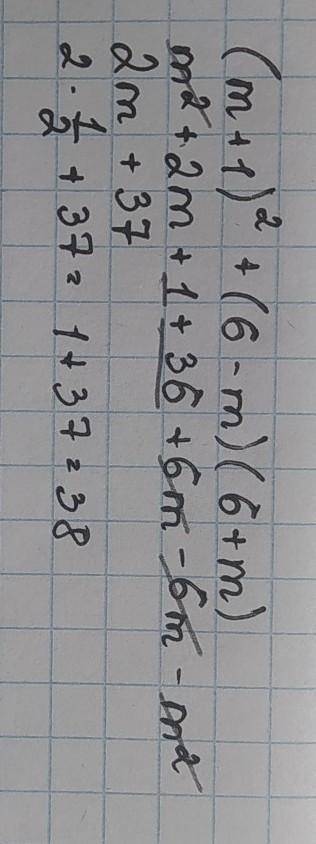 (m+1)² + (6-m)(6+m)
m² + 2m + 1 + 36 + 6m - 6m - m²
2m + 37
2 · 1/2 + 37 = 1 + 37 = 38